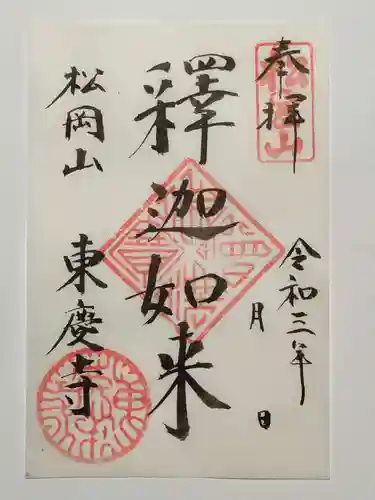 奉拝
令和三年
月 日
釋迦如来
松岡山
東慶寺
松岡山